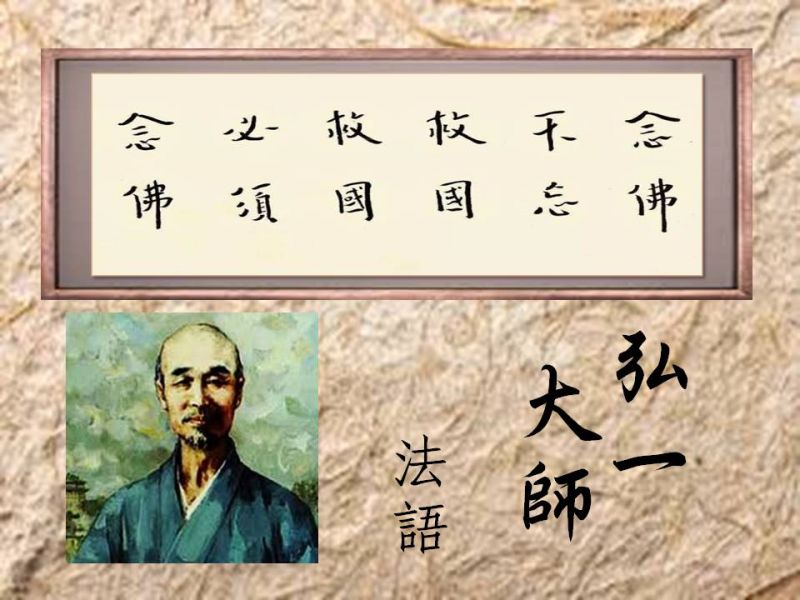 念佛
不忘
救國
救國
必須
念佛
弘一
大師
法語